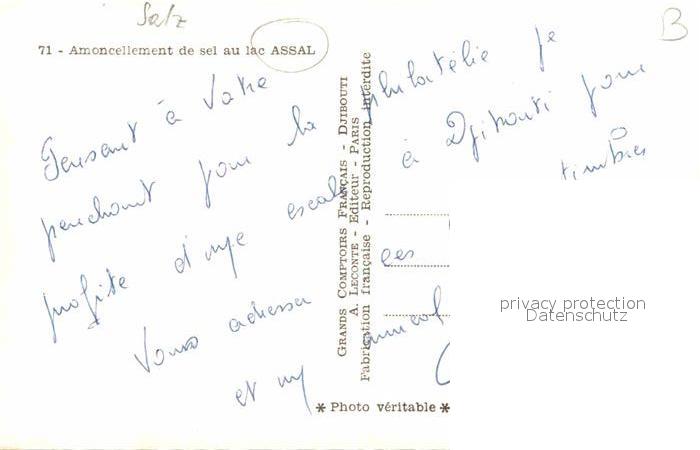 Salz
B
71 - Amoncellement de sel au lac ASSAL
Pensant à Votre
penchant pour la philatélie je
profite d'une escale à Djibouti pour
Vous adresser ces timbres
et my amical
GRANDS COMPTOIRS FRANÇAIS - DJIBOUTI
A. LECONTE - Editeur - PARIS
Fabrication française - Reproduction interdite
* Photo véritable *
privacy protection
Datenschutz